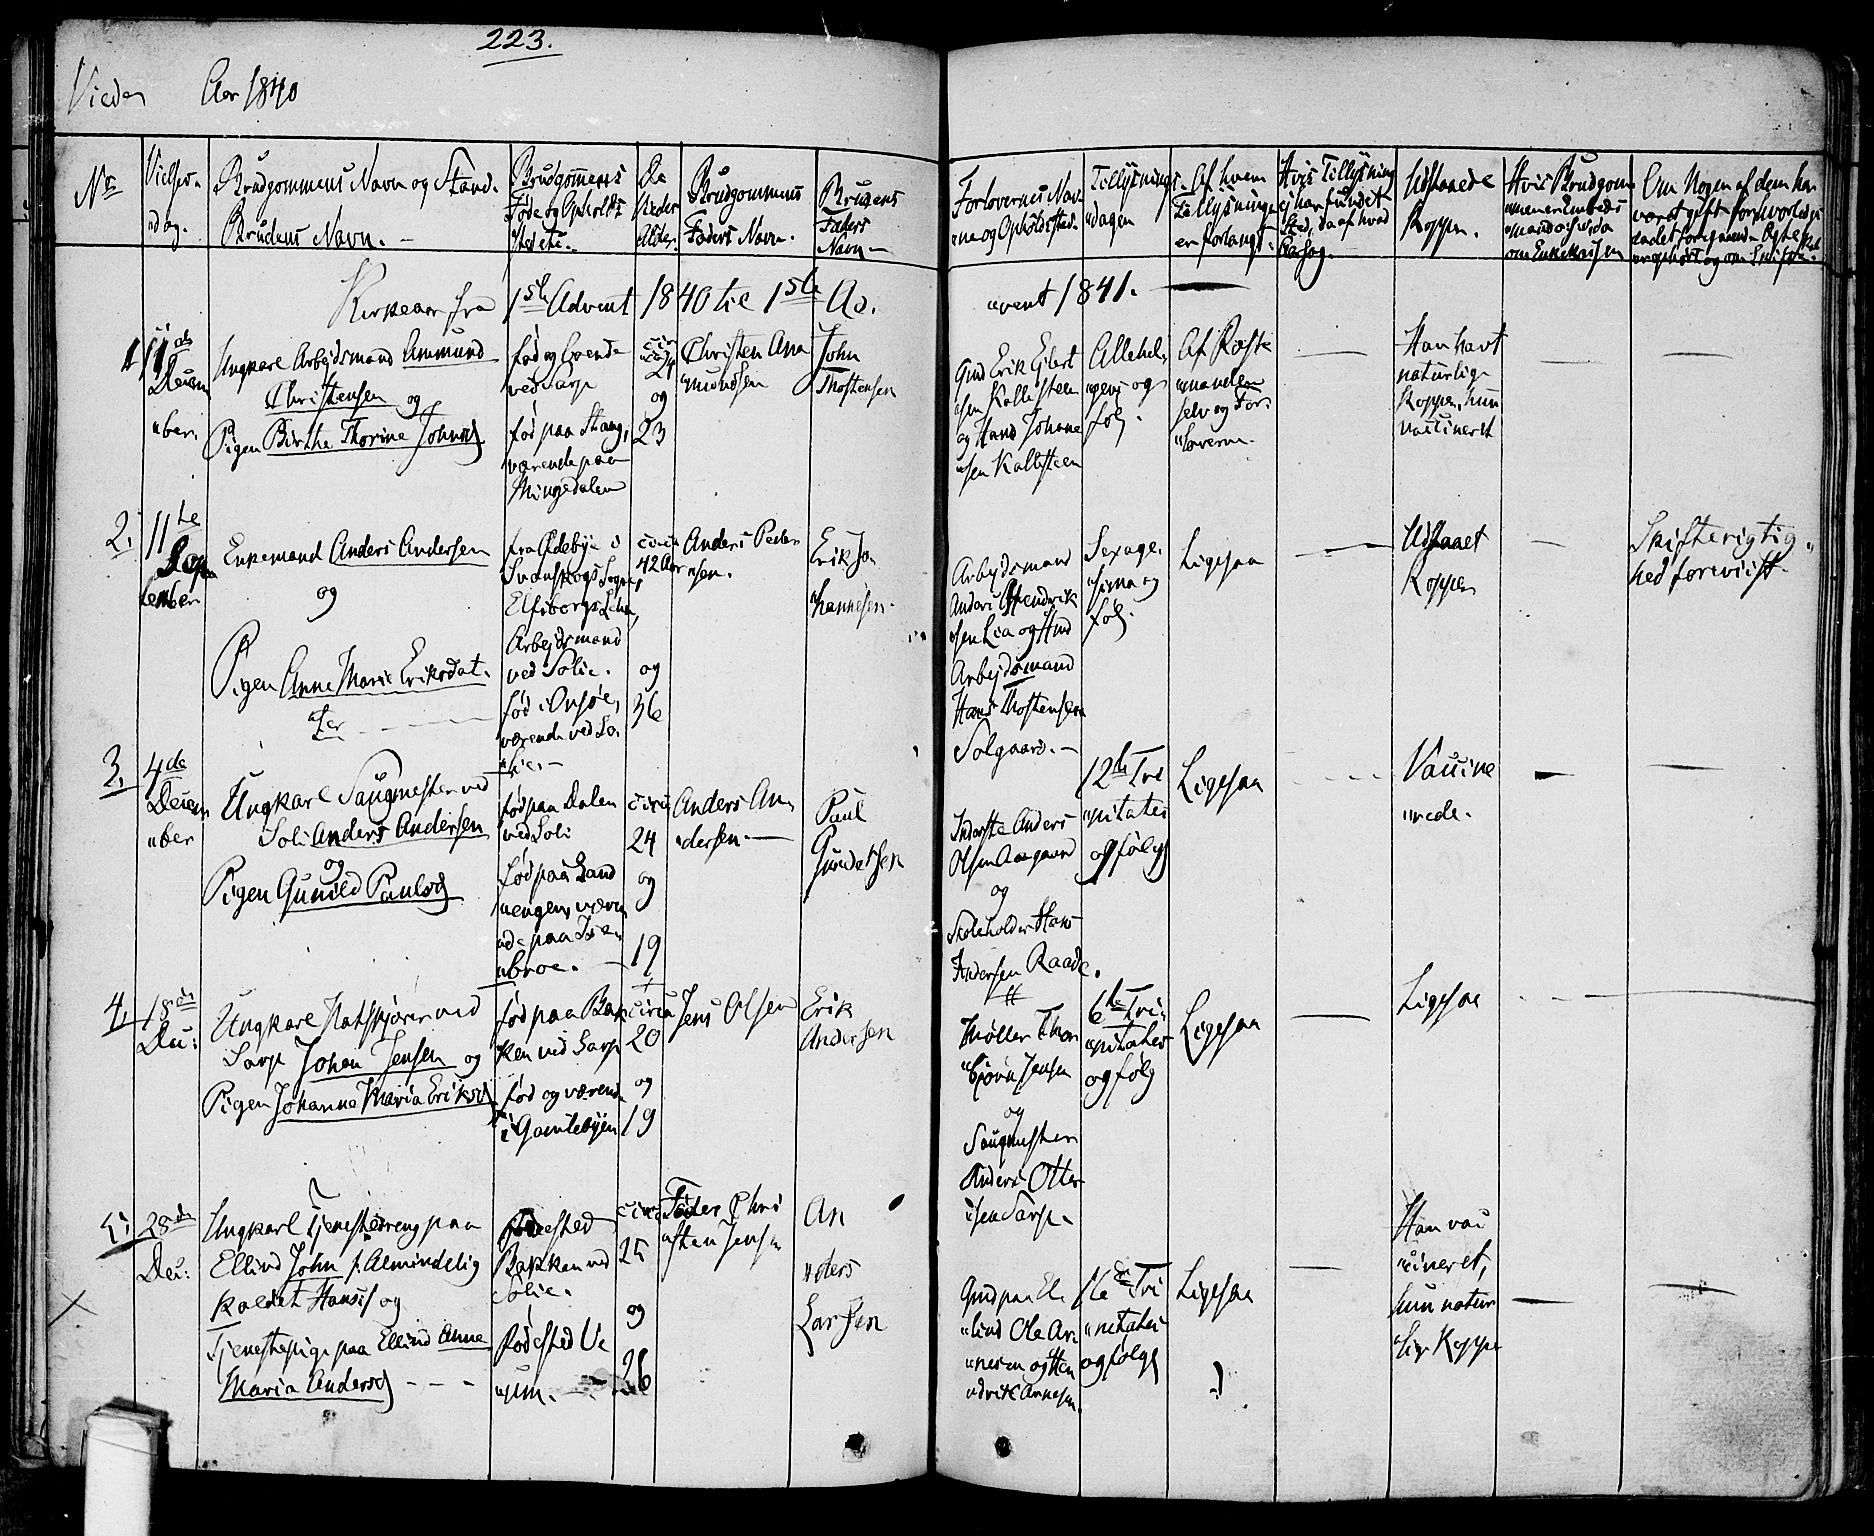 223.
Viede Aar 1840
Nr
Vielses-
dag.
Brudgommens Navn og Stand.
Brudens Navn. -
Brudgommens
Føde og Opholds
Stæd etc. -
De
Vieder
Alder.
Brudgommens
Faders Navn.
Brudens
Faders
Navn -
Forlovernes Nav
"ne og Opholdsted.
Tillysnings-
"dagen
Af hvem
Tillysningen
er forlangt.
Hvis Tillysning
ej har fundet
Sted, da af hvad
Aarsag.
Udstanede
Kopper.
Hvis Brudgom
"men er Embeds
"mand
om Enkekassen
Om Nogen af dem har
været gift forhen
Kirkeaar fra 1ste Advent 1840 til 1ste Ad.
"vent 1841. -
1
11te
Decem
"ber.
Ungkarl Arbejdsmand Ammund
Christensen og
Pigen Birthe Thorine Johnsd
fød og boende
ved Sarp
fød paa Haug,
værende paa
Mingedalen
circa
24
og
23
Christen Am
"mundsen
John
Thostensen
Gmd Erik Ejlert
"sen Kallesteen
og Hans Johane
"sen Kallesteen
Allehel.
"gens og
føl.
Af Præste
"manden
selv og For.
"loverne.
Han havt
naturlige
Kopper, hun
vaccineret
2.
11te
September
Enkemand Anders Andersen
og
Pigen Anne Marie Eriksdat.
"ter
fra Edebye i
Svanskogs Sogn,
Elfsborgs Lehn,
Arbejdsmand
ved Solie.
fød i Onsøe,
værende ved So.
"lie. -
circa
42 Aar
og
36
Anders Peder
"sen.
Erik Jo
"hannesen.
Arbejdsmand
Anders Hendrik
"sen Lia og
Arbejdsmand
Hans Thostensen
Solgaard. -
Sexage.
"sima og
føl.
Ligesaa
Udstaaet
Kopper
Skifterigtig.
hed foreviist.
3.
4de
Decem
"ber
Ungkarl Saugmester ved
Soli Anders Andersen
og
Pigen Gunild Paulsd
fød paa Dalen
ved Soli
Fød paa Sand
"engen, være
"de paa Tøs
"broe. -
circa
24
og
19
Anders An
"dersen. -
Paul
Gundersen
Inderste Anders
Olsen Aagaard
og
Skoleholder Hans
Andersen Raade.
12te Tri
"nitatis
og følg
Ligesaa
Vaccine
"rede.
4.
18de
Dec:
Ungkarl Natskjører ved
Sarp Johan Jensen og
Pigen Johanne Maria Eriksd
fød paa Bak
"ken ved Sarp
fød og værende
i Gamlebyen
circa
20
og
19
Jens Olsen
Erik
Andersen
Møller Thor
"bjørn Jensen
og
Saugmester
Anders Otter
"sen Sarp.
6te Tri
"nitatis
og følg
Ligesaa
Ligesaa
5.
28de
Dec:
Ungkarl Tjenestedreng paa
Ellind John f. Almindelig
kaldet Hansis og
Tjenestepige paa Ellind Anne
Maria Andersd - - -
Fødested
Bakken ved
Solie.
Fødested Ve
"um. -
circa
25
og
26
Fader Chri
"sten Jensen
An
"ders
Larsen
Gmd paa El
"lind Ole Ar
"nesen og Hen
"drik Arnesen.
16de Tri
"nitatis
og følg
Ligesaa
Han vac
"cineret,
hun natur
"lige Kopper